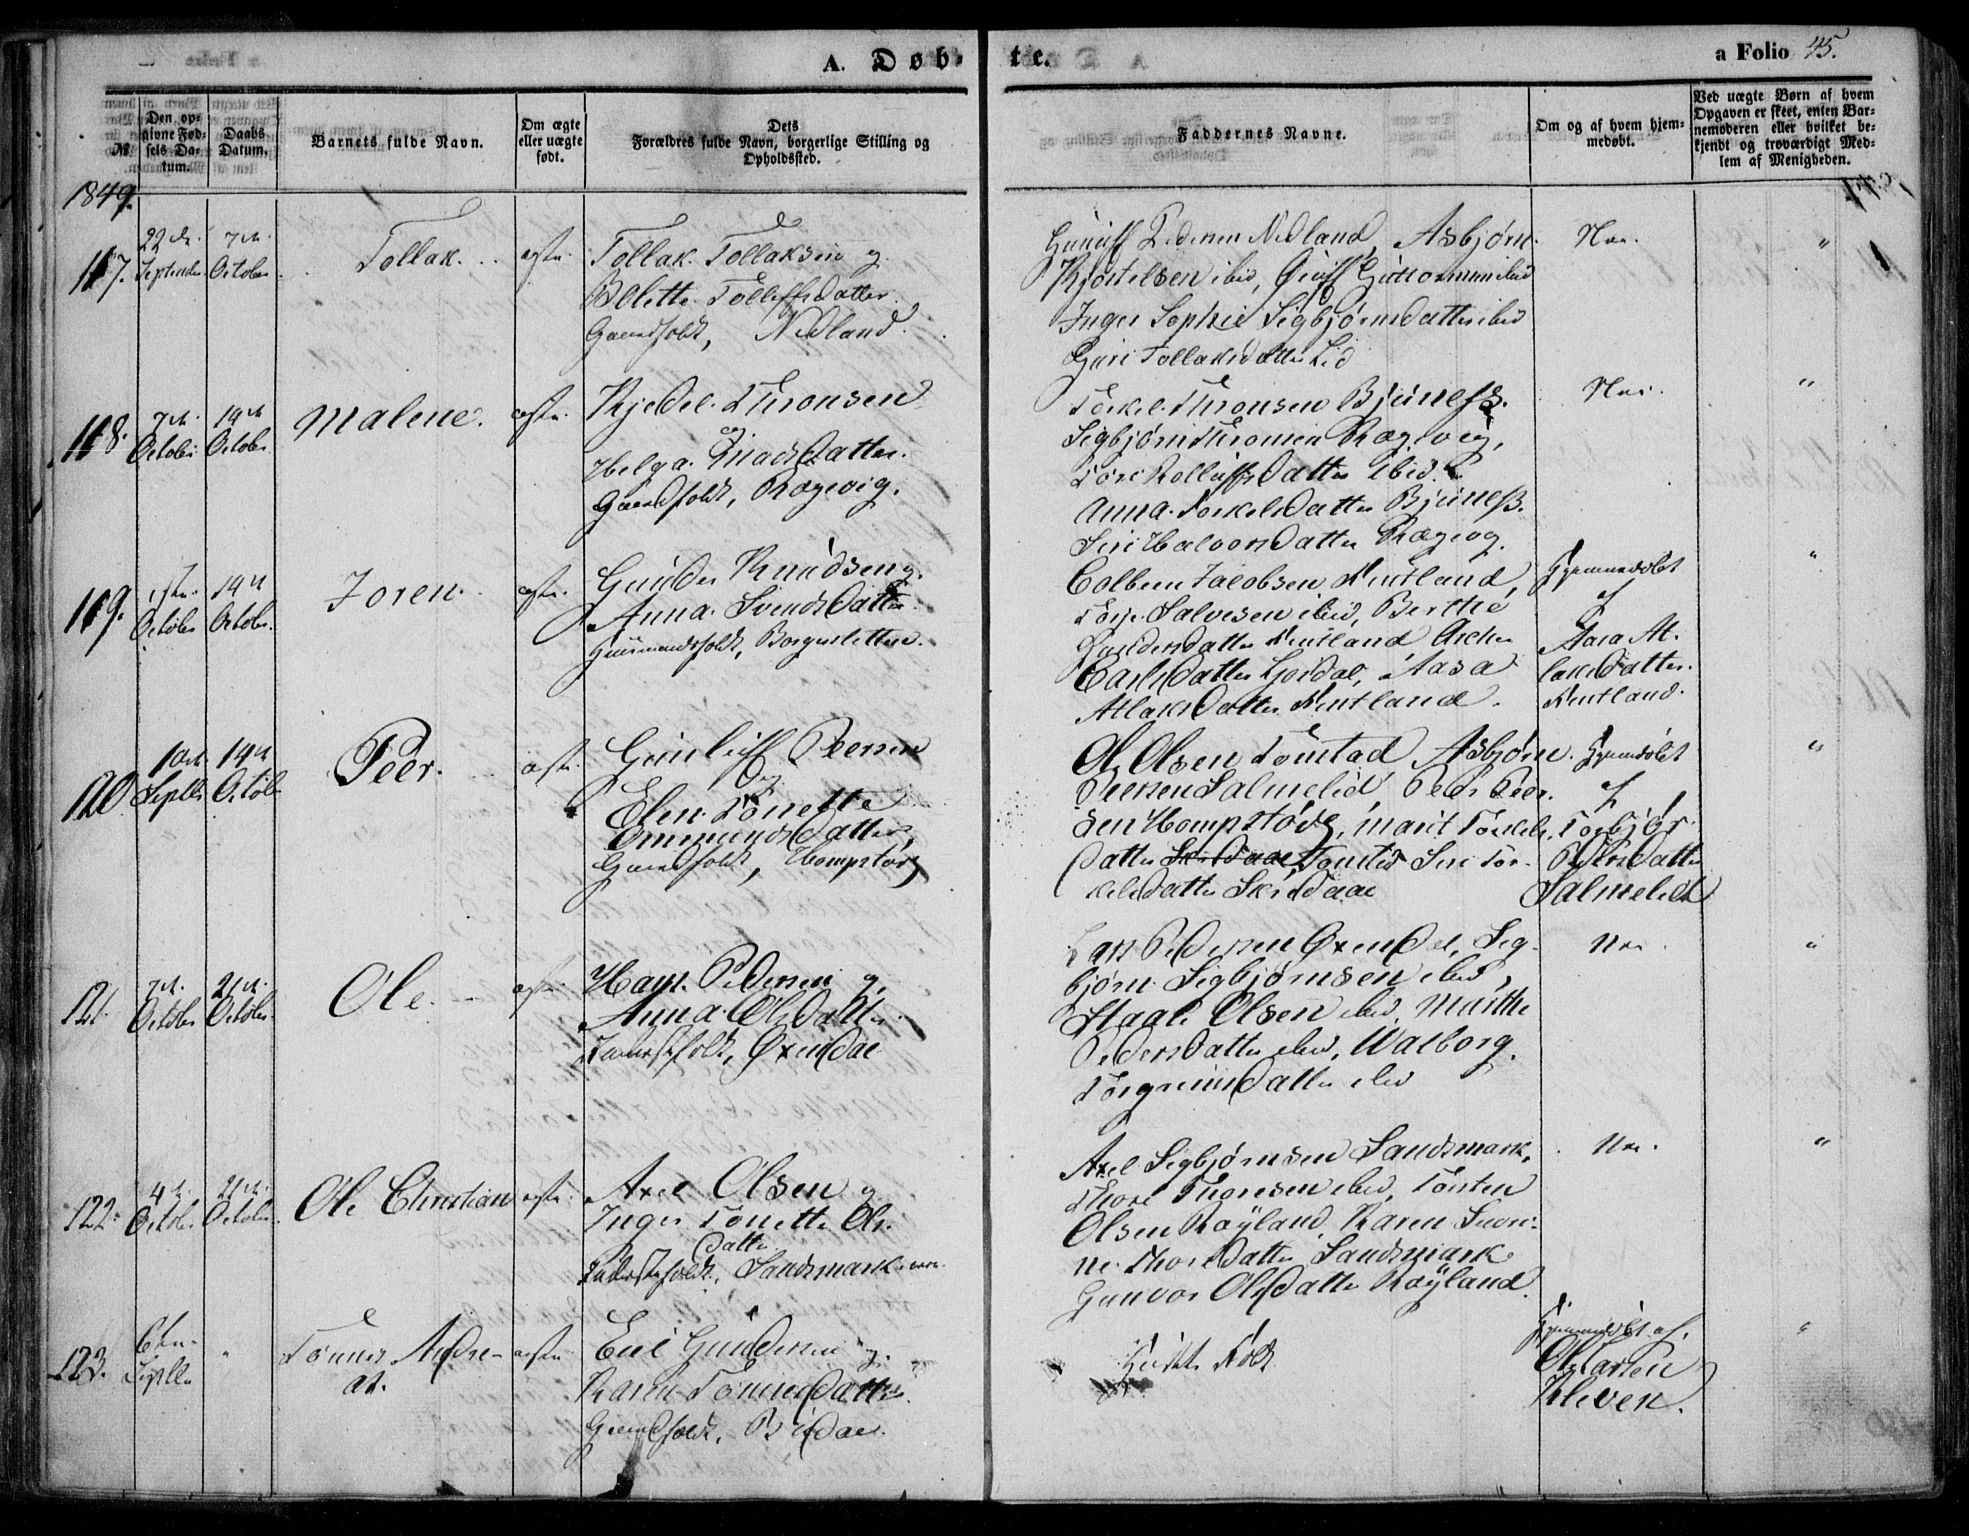 A. Døbte. a Folio 45.
No.
Den opgivne Fødsels Datum.
Daabs Datum.
Barnets fulde Navn.
Om ægte eller uægte født.
Dets Forældres fulde Navn, borgerlige Stilling og Opholdssted.
Faddernes Navne.
Om og af hvem hjemmedøbt.
Ved uægte Børn af hvem Opgaven er skeet, enten Barnemoderen eller hvilket bekjendt og troværdigt Medlem af Menigheden.
1849.
117.
22de September
7de October
Tollak.
ægte.
Tollak Tollaksen og
Bolette Tollefsdatter
Gaardfolk, Nedland.
Pedersen Nedland, Asbjørn
Kjøstelsen ibid,
Inger Sophie Sigbjørnsdatter ibid
Guri Tollaksdatter Lid
Nei.
"
118.
7de October
14de October
Malene.
ægte.
Kjedel Thronsen
og
Helga Knudsdatter.
Gaardfolk, Rægevig.
Torkel Thronsen Bjuneß.
Sigbjørn Thronsen Rægevig,
Tori Rolleffsdatter ibid.
Anna Torkelsdatter Bjuneß.
Siri Halvorsdatter Rægevig.
Nei.
"
119.
1ste October
14de October
Joren.
ægte.
Gunder Knudsen og
Anna Svendsdatter
Huusmandsfolk,
Colben Jacobsen Nuntland,
Torje Salvesen ibid, Berthe
Gundersdatter Nuntland
Carlsdatter Aasa
Atlaksdatter Nuntland.
Hjemmedøbt
af
Aasa At-
laksdatter
Nuntland.
"
120
10de Septbr
14de October
Peder.
ægte.
Gunluff Peersen
og
Elen Tonette
Ommundsdatter,
Gaardfolk, Hompstøe
Ole Olsen Tonstad Asbjørn
Peersen Salmelid, Peder Peer-
sen Hompstøe, Marit Torkels-
datter Tonstad Siri Tor-
kelsdatter Skredaae
Hjemdøbt
af
Torbjør
Pedersdatter
Salmelid
"
121.
7de October
21de October
Ole.
ægte.
Hans Pedersen og
Anna Olsdatter.
Inderstfolk, Øxendal
Lars Pedersen Øxendal, Sig-
bjørn Sigbjørnsen ibid,
Staale Olsen ibid, Marthe
Pedersdatter ibid, Walborg
Torgrimsdatter ibid
Nei
"
122.
4de October
21de October
Ole Christian
ægte.
Axel Olsen og
Inger Tonette Ols-
datter
Inderstfolk, Sandsmark
Axel Sigbjørnsen Sandsmark,
Thore Thoresen ibid, Torsten
Olsen Røyland, Karen Suve-
ne Thoresdatter Sandsmark
Gunvor Olsdatter Røyland.
Nei.
"
123.
6te Septbr
"
Tønnes Andre-
as.
ægte
Eiel Gundersen og
Karen Tønnesdatter
Gaardfolk,
Hjemmedøbt af
Ole Larsen
Kleven.
"